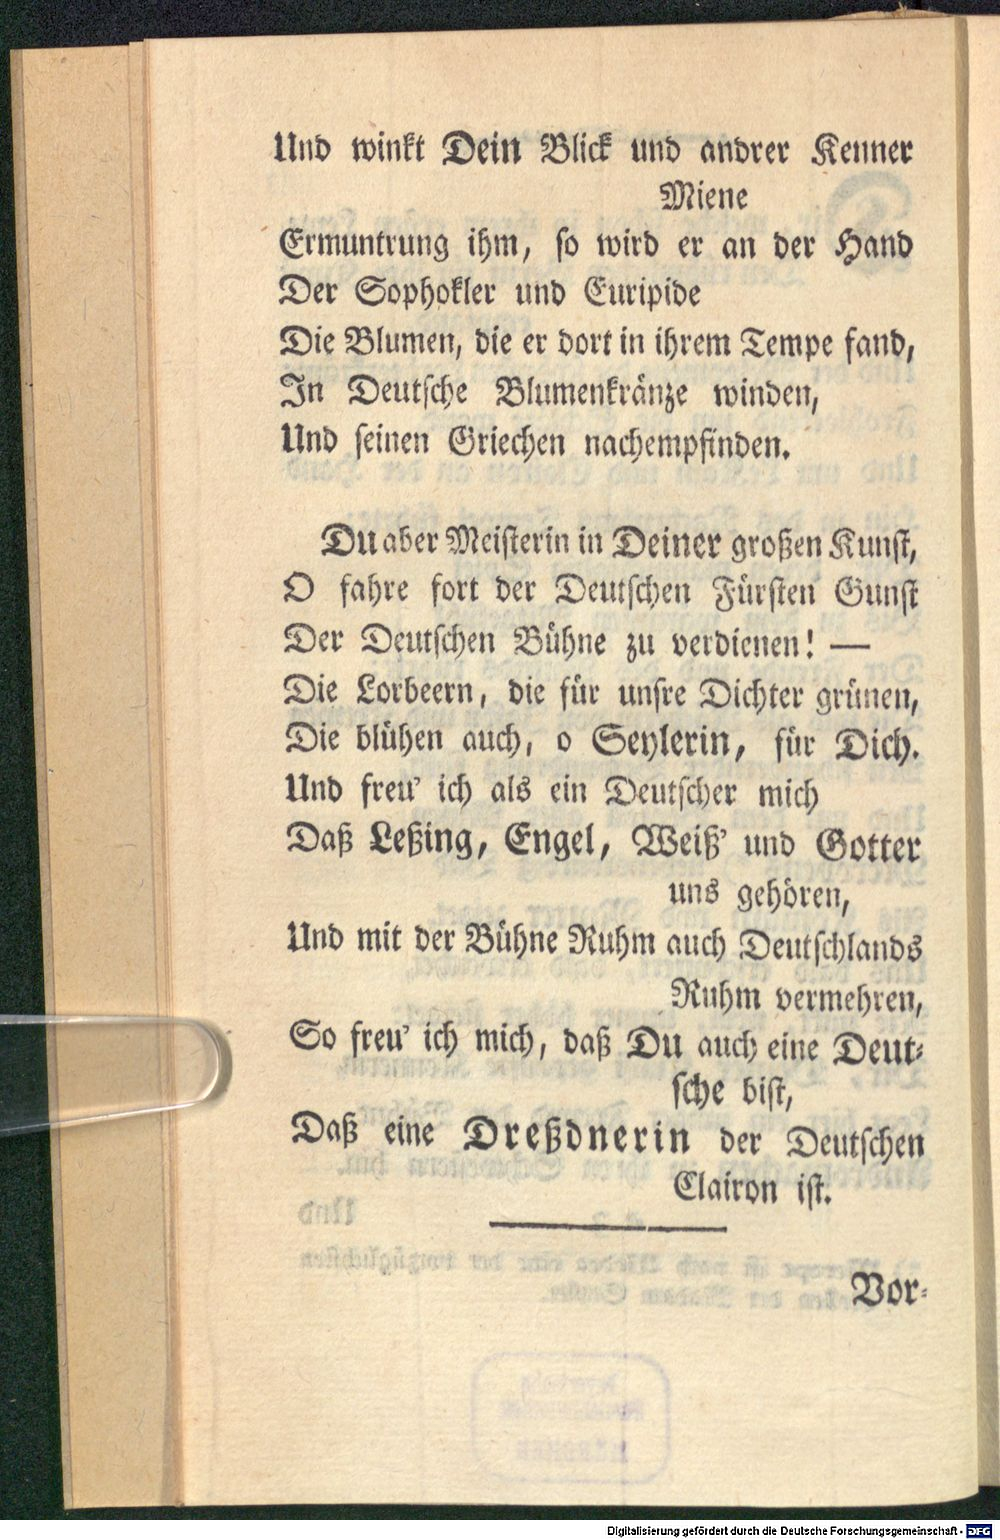 Und winkt Dein Blick und andrer Kenner
Miene
Ermuntrung ihm, so wird er an der Hand
Der Sophokler und Euripide
Die Blumen, die er dort in ihrem Tempe fand,
In Deutsche Blumenkränze winden,
Und seinen Griechen nachempfinden.
Du aber Meisterin in Deiner großen Kunst,
O fahre fort der Deutschen Fürsten Gunst
Der Deutschen Bühne zu verdienen! —
Die Lorbeern, die für unsre Dichter grünen,
Die blühen auch, o Seylerin, für Dich.
Und freu' ich als ein Deutscher mich
Daß Leßing, Engel, Weiß' und Gotter
uns gehören,
Und mit der Bühne Ruhm auch Deutschlands
Ruhm vermehren,
So freu' ich mich, daß Du auch eine Deut-
sche bist,
Daß eine Dreßdnerin der Deutschen
Clairon ist.
Vor-
Digitalisierung gefördert durch die Deutsche Forschungsgemeinschaft - DFG